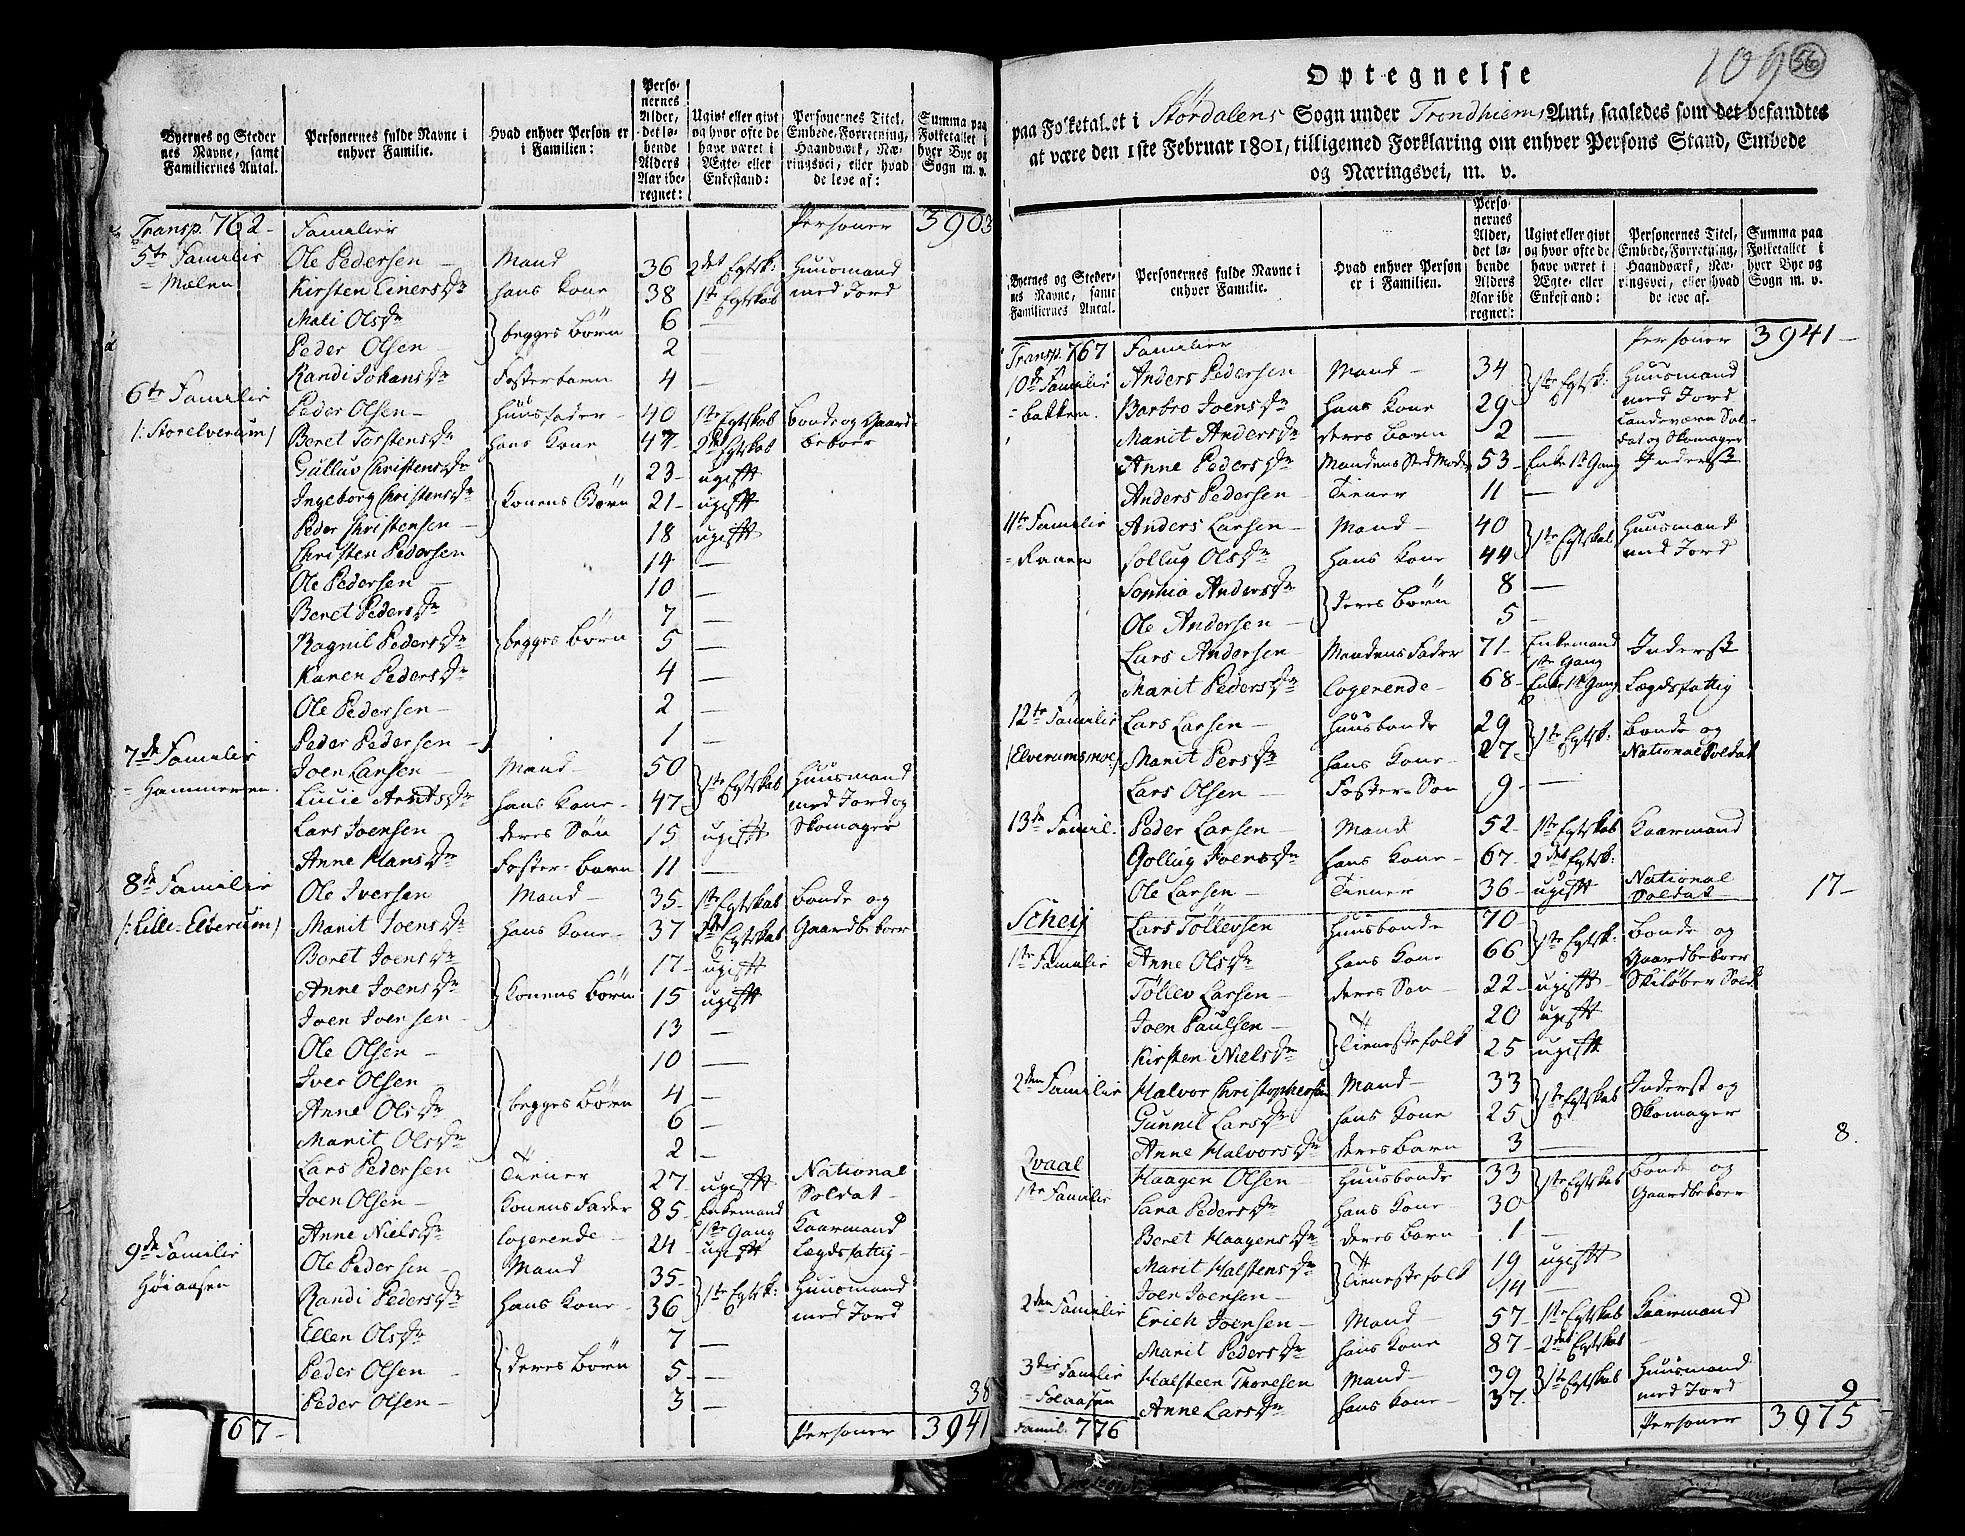 Byernes og Steder
nes Navne, samt
Familiernes Antal.
Personernes fulde Navne i
enhver Familie.
Hvad enhver Person er
i Familien:
Perso-
nernes
Alder,
det lø-
bende
Alders
Aar ibe-
regnet:
Ugivt eller givt
og hvor ofte de
have været i
Ægte- eller
Enkestand:
Personernes Titel,
Embede, Forretning,
Haandværk, Næ-
ringsvei, eller hvad
de leve af:
Summa paa
Folketallet i
hver Bye og
Sogn m. v.
Transp. 762 - Familier Personer 3903
5te Familie Ole Pedersen - Mand 36 2det Egtsk: Huusmand
= Mælen Kirsten Einersdr hans Kone 38 1te Egtskab med Jord
Mali Olsdr } begges Børn 6 -
Peder Olsen - 2 -
Randi Johansdr Fosterbarn 4 -
6te Familie Peder Olsen - Huusfader - 40 1te Egtskab Bonde og Gaard-
/: Storelverum/ Beret Torstensdr hans Kone 47 - 2det Egtskab beboer
Gulluv Christensdr } Konens Børn 23 - ugift
Ingeborg Christensdr 21 - ugift
Peder Christensen - 18 ugift
Christen Pedersen } begges Børn 14 -
Ole Pedersen - 10 -
Beret Pedersdr 7 -
Ragnil Pedersdr 5 -
Karen Pedersdr 4 -
Ole Pedersen - 2 -
Peder Pedersen - 1 -
7de Familie Joen Larsen - Mand - 50 } 1te Egtskab Huusmand
= Hammeren. Lucie Arntsdr hans Kone - 47 med Jord og
Lars Joensen deres Søn 15 ugift Skomager
Anne Hansdr Foster-barn 11 -
8de Familie Ole Iversen Mand - 35 - 1te Egtskab Bonde og
/: Lille-Elverum/ Marit Joensdr hans Kone - 37 2det Egtskab Gaardbeboer
Beret Joensdr } Konens Børn 17 - ugift
Anne Joensdr 15 ugift
Joen Joensen - 13 -
Ole Olsen - } begges Børn 10 -
Iver Olsen - 4 -
Anne Olsdr 6 -
Marit Olsdr 2 -
Lars Pedersen Tiener 27 ugift National
Joen Olsen - Konens Fader 85 - Enkemand Soldat -
1te Gang Kaarmand
Anne Nielsdr logerende - 24 - ugift Lægdsfattig -
9de Familie Ole Pedersen - Mand 35 - } 1te Egtsk: Huusmand
Høiaasen Randi Pedersdr hans Kone - 36 med Jord
Ellen Olsdr } deres Børn 7 -
Peder Olsen - 5 -
Peder Olsen - 3 - 38
67 - Personer 3941
109 56
Optegnelse
paa Folketallet i Størdalens Sogn under Trondhiems Amt, saaledes som det befandtes
at være den 1ste Februar 1801, tilligemed Forklaring om enhver Persons Stand, Embede
og Næringsvei, m. v.
Byernes og Steder-
nes Navne, samt
Familiernes Antal.
Personernes fulde Navne i
enhver Familie.
Hvad enhver Person
er i Familien.
Perso-
nernes
Alder,
det lø-
bende
Alders
Aar ibe
regnet:
Ugivt eller givt
og hvor ofte de
have været i
Ægte- eller
Enkestand:
Personernes Titel,
Embede, Forretning,
Haandværk, Næ-
ringsvei, eller hvad
de leve af.
Summa paa
Folketallet i
hver Bye og
Sogn m. v.
Transp. 767 Familier Personer 3941 -
10de Familie Anders Pedersen Mand - 34 } 1te Egtsk: Huusmand
= bakken. Barbro Joensdr hans Kone 29 med Jord
Landeværn Sol-
Marit Andersdr deres Barn 2 - dat og Skomager
Anne Pedersdr Mandens Sted Moder 53 - Enke 1te Gang Inderst
Anders Pedersen - Tiener 11 -
11te Familie Anders Larsen - Mand - 40 } 1te Egtskab Huusmand
= Raaen Sollug Olsdr hans Kone 44 med Jord
Sophia Andersdr } deres Børn 8 -
Ole Andersen - 5 -
Lars Andersen - Mandens Fader 71 - Enkemand Inderst
1te Gang
Marit Pedersdr logerende - 68 - Enke 1te Gang Lægdsfattig
12te Familie Lars Larsen - Huusbonde 29 } 1te Egtsk: Bonde og
/Elverumsmoe:/ Marit Persdr hans Kone - 27 - National Soldat
Lars Olsen - Foster-Søn 9 -
13de Famil. Peder Larsen - Mand 52 - 1te Egtskab Kaarmand
Gollug Joensdr hans Kone - 67 - 2det Egtsk:
Ole Larsen - Tiener 36 - ugift National
Soldat 17 -
Scheij Lars Tøllevsen Huusbonde 70 } 1te Egtsk: Bonde og
1te Familie Anne Olsdr hans Kone 66 Gaardbeboer
Tøllev Larsen - deres Søn - 22 - ugift - Skiløber Sold.
Joen Paulsen - } Tienestefolk 20 ugift
Kirsten Nielsdr 25 ugift
2den Familie Halvor Christophersen Mand - 33 } 1te Egtskab Inderst og
Gunnil Larsdr hans Kone 25 Skomager
Anne Halvorsdr deres Barn 3 - 8.
Qvaal Haagen Olsen - Huusbonde 33 } 1te Egtskab Bonde og
1te Familie Sara Pedersdr hans Kone - 30 Gaardbeboer
Beret Haagensdr deres Barn 1 -
Marit Halstensdr } Tienestefolk 19 ugift
Joen Joensen - 14 -
2den Familie Erich Joensen - Mand - 57 - 1te Egtskab Kaarmand
Marit Pedersdr hans Kone 87 - 2det Egtskab -
3die Familie Halsteen Thoresen Mand - 39 } 1te Egtskab Huusmand
= Folaasen Anne Larsdr hans Kone - 37. med Jord 9
Famil. 776 Personer 3975 -